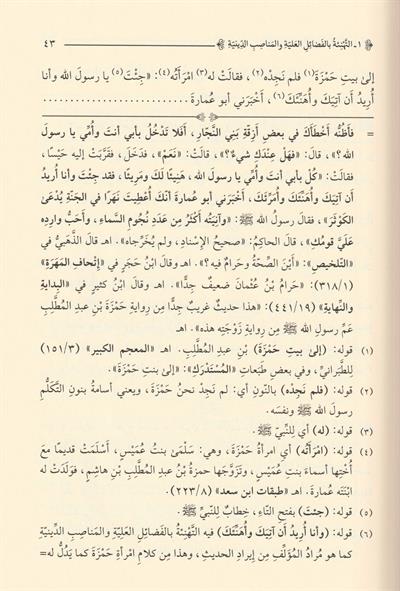 ١ـ التَّهْنِئَةُ بالفَضائِلِ العَلِيَّةِ والمَناصِبِ الدِّينِيَّةِ ٤٣
إلىٰ بيتِ حَمْزَةَ(١) فلم نَجِدْه(٢)، فقالَتْ له(٣) امْرَأتُه(٤): «جِئْتَ(٥) يا رسولَ اللهِ وأنا
أُرِيدُ أن آتِيَكَ وأُهَنِّئَكَ(٦)، أخْبَرَنِي أبو عُمارةَ ................................
= فأظُنُّه أخْطَأكَ في بعضِ أزِقَّةِ بَنِي النَّجّارِ، أفَلا تَدْخُلُ بأبي أنتَ وأُمِّي يا رسولَ
اللهِ؟»، قال: «فهَلْ عِنْدَكِ شيءٌ؟»، قالَتْ: «نَعَمْ»، فدَخَلَ، فقَرَّبَتْ إليه حَيْسًا،
فقالَتْ: «كُلْ بأبي أنتَ وأُمِّي يا رسولَ اللهِ، هَنِيئًا لكَ ومَرِيئًا، فقد جِئتَ وأنا أُرِيدُ
أن آتِيَكَ وأُهَنِّئَكَ وأُمَرِّئَكَ، أخْبَرَنِي أبو عُمارةَ أنَّكَ أُعْطِيتَ نَهَرًا في الجَنَّةِ يُدْعَىٰ
الكَوْثَرَ»، فقالَ رسولُ اللهِ ﷺ: «وآنِيَتُه أكْثَرُ مِن عَدَدِ نُجُومِ السَّماءِ، وأحَبُّ وارِدِه
عَلَيَّ قومُكِ»، قالَ الحاكِمُ: «صحيحُ الإسنادِ، ولم يُخَرِّجاه». اهـ قالَ الذَّهَبِيُّ في
«التَّلخِيصِ»: «أيْنَ الصِّحَّةُ وحَرامٌ فيه؟». اهـ وقالَ ابْنُ حَجَرٍ في «إتْحافِ المَهَرةِ»
(٣١٨/١): «حَرامُ بْنُ عُثْمانَ ضَعيفٌ جِدًّا». اهـ وقالَ ابْنُ كثيرٍ في «البِدايةِ
والنِّهايةِ» (٤٤١/١٩): «هذا حديثٌ غريبٌ جِدًّا مِن رِوايةِ حَمْزةَ بْنِ عبدِ المُطَّلِبِ
عَمِّ رسولِ اللهِ ﷺ مِن رِوايةِ زَوْجَتِه هذه». اهـ
(١) قوله: (إلىٰ بيتِ حَمْزةَ) بْنِ عبدِ المُطَّلِبِ. اهـ «المعجم الكبير» (١٥١/٣)
للطَّبَرانِيِّ، وفي بعضِ طَبَعاتِ «المُسْتَدْرَكِ»: «إلىٰ بنتِ حَمْزةَ».
(٢) قوله: (فلم نَجِدْه) بالنّونِ أي: لم نَجِدْ نحنُ حَمْزةَ، ويعني أسامةُ بنونِ التَّكَلُّمِ
رسولَ اللهِ ﷺ ونفسَه.
(٣) قوله: (له) أي لِلنَّبِيِّ ﷺ.
(٤) قوله: (امْرَأتُه) أي امرأةُ حَمْزةَ، وهي: سَلْمَىٰ بنتُ عُمَيْسٍ، أسْلَمَتْ قديمًا معَ
أُخْتِها أسماءَ بنتِ عُمَيْسٍ، وتَزَوَّجَها حمزةُ بْنُ عبدِ المُطَّلِبِ بْنِ هاشِمٍ، فوَلَدَتْ له
ابْنَتَه عُمارةَ. اهـ «طبقات ابن سعد» (٢٢٣/٨).
(٥) قوله: (جئتَ) بفتحِ التّاءِ، خِطابٌ لِلنَّبِيِّ ﷺ.
(٦) قوله: (وأنا أُرِيدُ أن آتِيَكَ وأُهَنِّئَكَ) فيه التَّهْنِئةُ بالفَضائِلِ العَلِيَّةِ والمَناصِبِ الدِّينِيَّةِ
كما هو مُرادُ المُؤَلِّفِ مِن إيرادِ الحديثِ، وهذا مِن كلامِ امْرأةِ حَمْزةَ كما يَدُلُّ له=